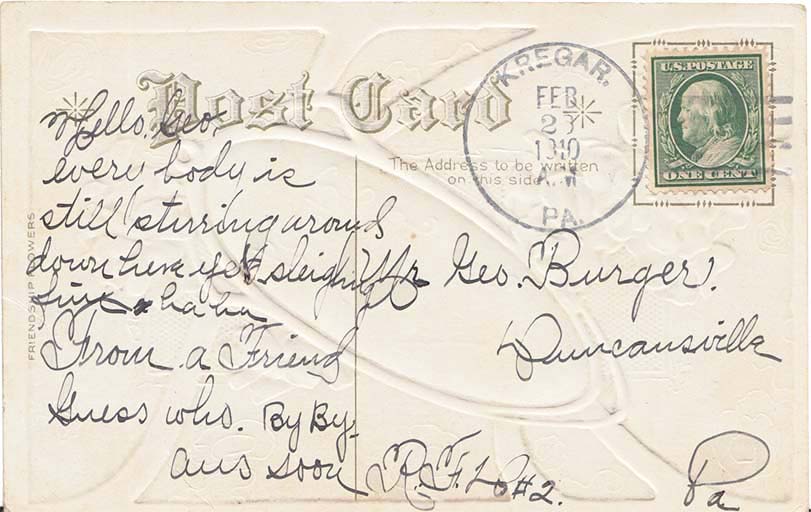 Post Card
KREGAR,
FEB
23
1910
A.M
PA.
U.S. POSTAGE
ONE CENT
The Address to be written
on this side
FRIENDSHIP FLOWERS
Hello, Geo,
every body is
still stirring around
down here yet, sleighing
fine ha ha
From a Friend
Guess who. By By.
ans soon
Mr Geo. Burger.
Duncansville
R.F.D #2.
Pa